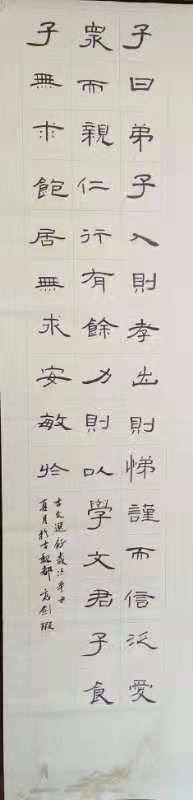 子曰弟子入則孝出則悌謹而信泛愛
眾而親仁行有餘力則以學文君子食
子無求飽居無求安敏於
古文選 歲次辛丑
夏月於古 都